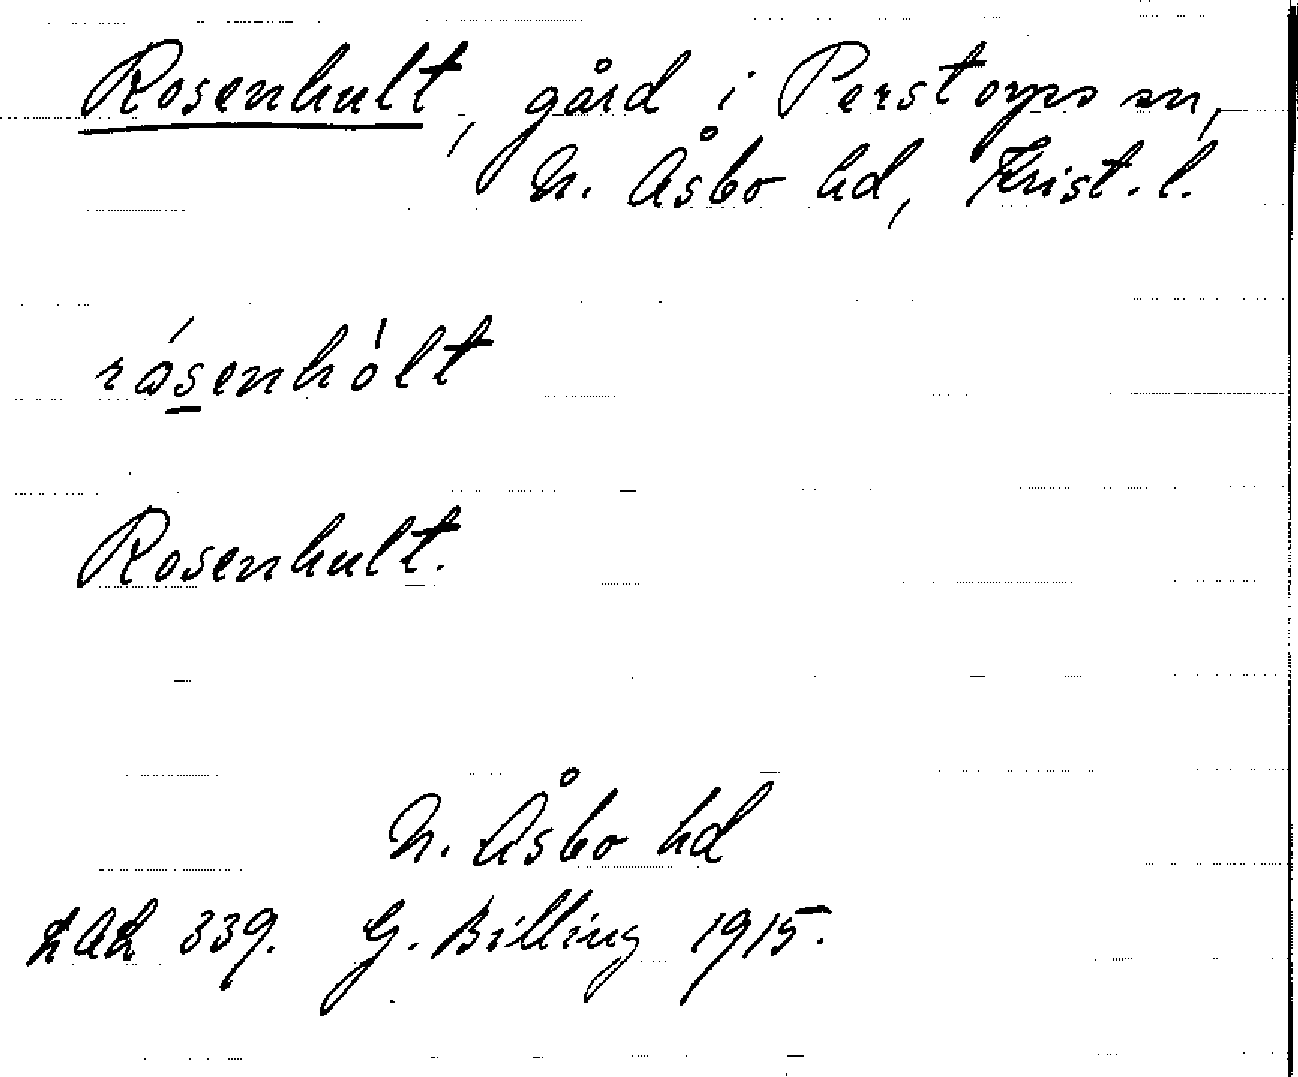 Rosenhult, gård i Perstorps sn,
N. Åsbo hd, Krist. l.
rósenhólt
Rosenhult.
N. Åsbo hd
LAL 339. G. Billing 1915.